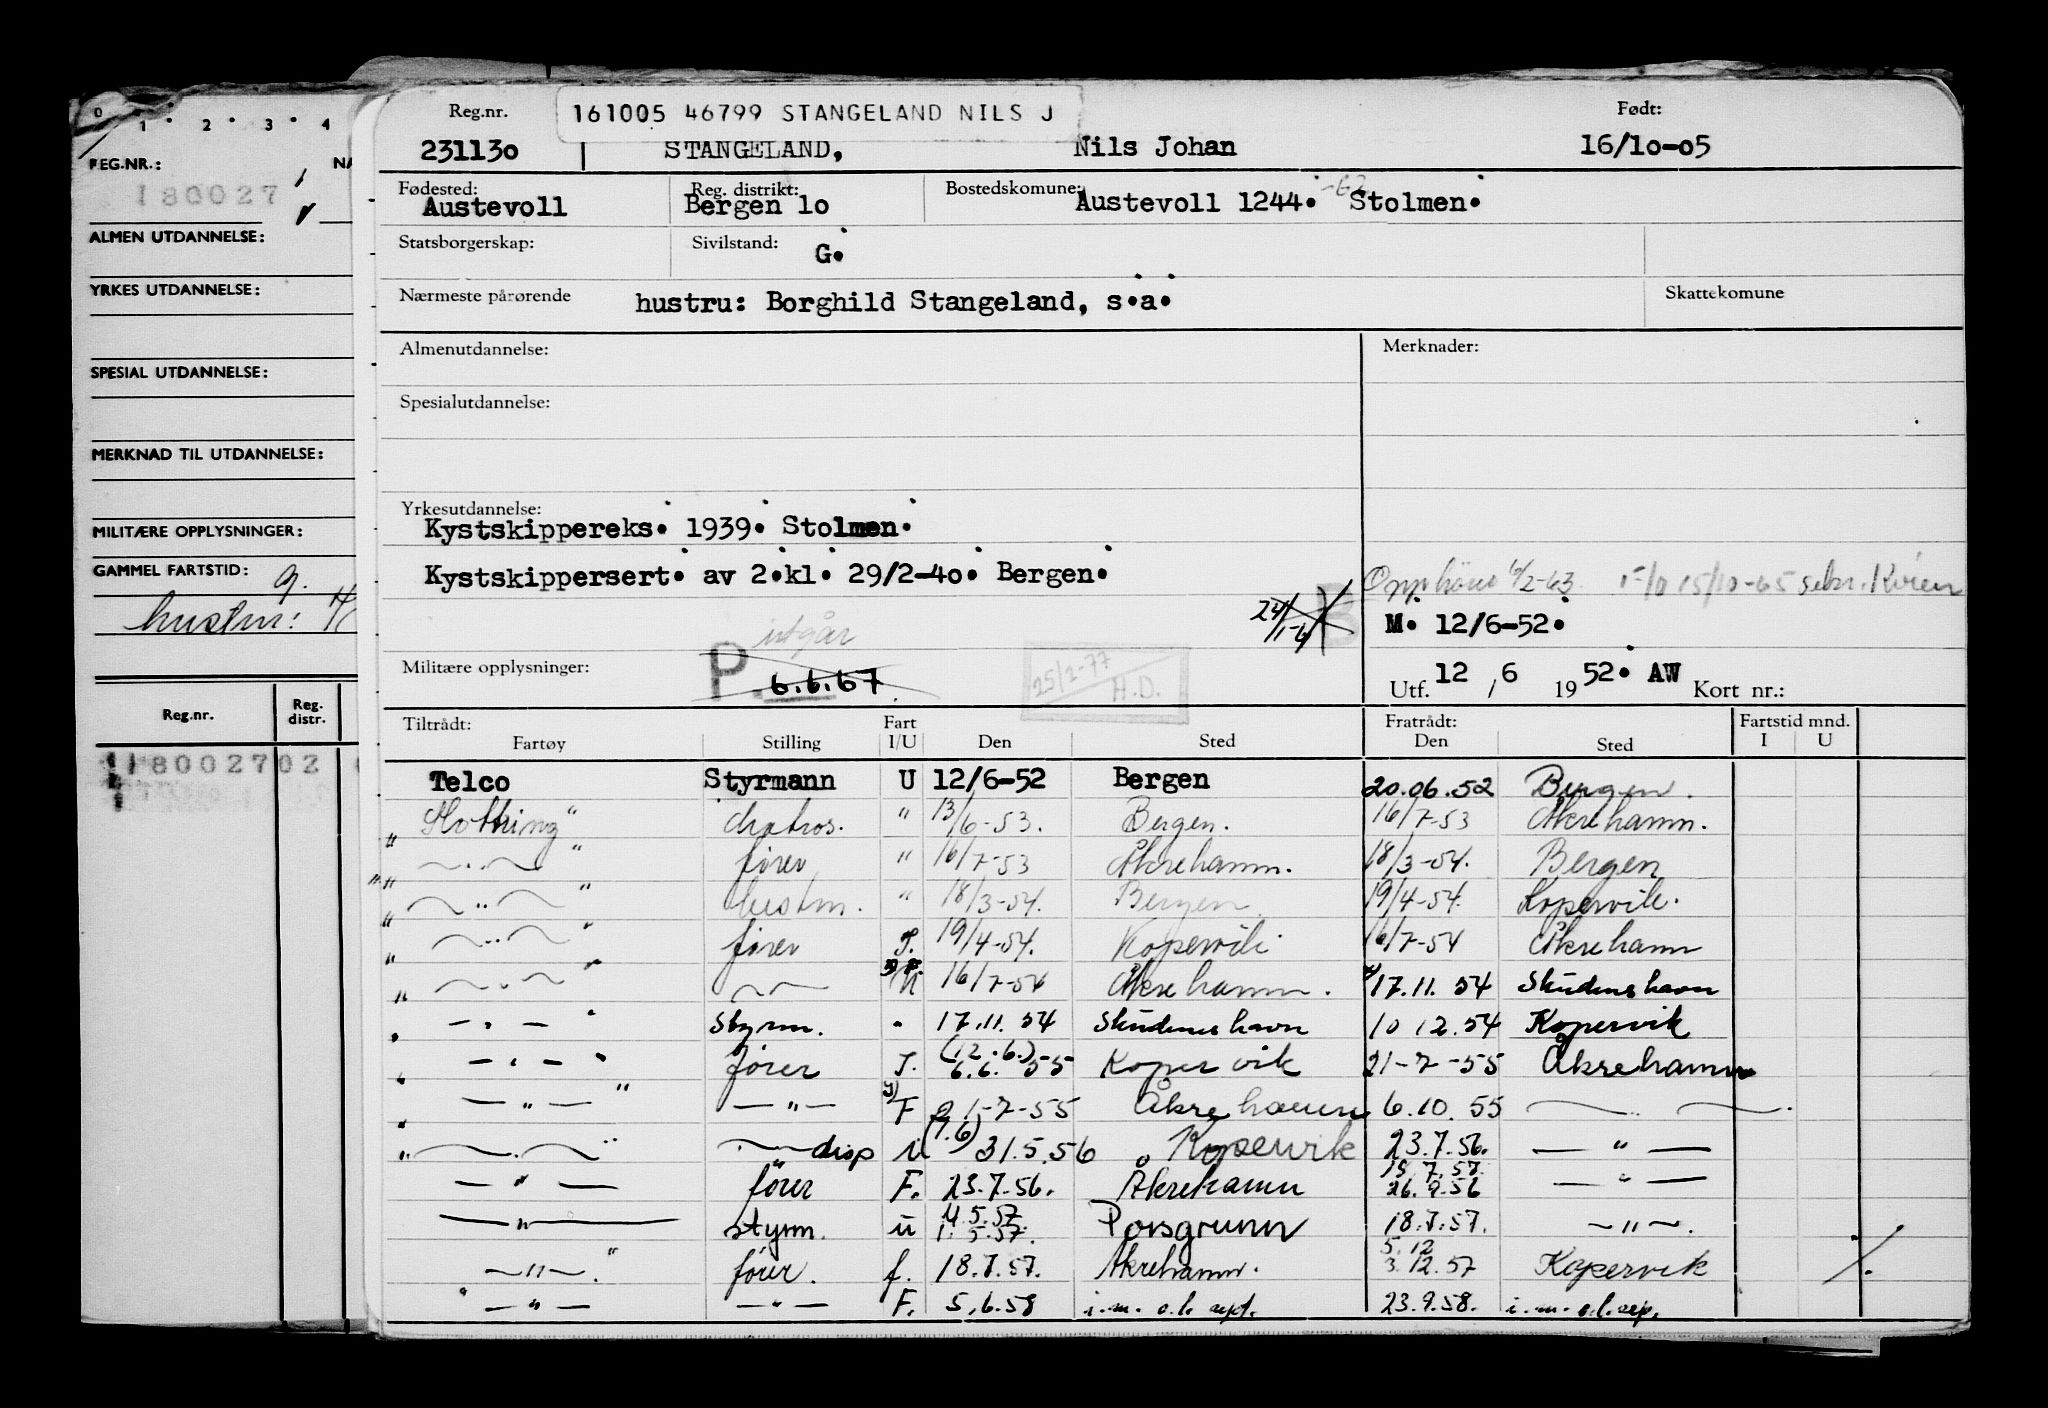 0 1 2 3 4
REG.NR.: NA
180027
ALMEN UTDANNELSE:
YRKES UTDANNELSE:
SPESIAL UTDANNELSE:
MERKNAD TIL UTDANNELSE:
MILITÆRE OPPLYSNINGER:
GAMMEL FARTSTID: g.
hustru: H
Reg.nr. Reg. distr.
118002702
161005 46799 STANGELAND NILS J
Reg.nr. Født:
231130 STANGELAND, Nils Johan 16/10-05
Fødested: Reg. distrikt: Bostedskomune: -62
Austevoll Bergen 10 Austevoll 1244. Stolmen.
Statsborgerskap: Sivilstand: G.
Nærmeste pårørende hustru: Borghild Stangeland, s.a. Skattekomune
Almenutdannelse: Merknader:
Spesialutdannelse:
Yrkesutdannelse:
Kystskippereks. 1939. Stolmen.
Kystskippersert. av 2.kl. 29/2-40. Bergen.
6/2-63 15/10-65
24/1-6 B M. 12/6-52.
utgår
Militære opplysninger: P. 6.6.67 25/2-77 H.D.
Utf. 12/6 1952. AW Kort nr.:
Tiltrådt: Fart Fratrådt: Fartstid mnd.
Fartøy Stilling I/U Den Sted Den Sted I U
Telco Styrmann U 12/6-52 Bergen 20.06.52 Bergen.
" Slottring " Matros. " 13/6-53. Bergen. 16/7-53 Åkrehamn.
" — . — " fører " 16/7-53 Åkrehamn. 18/3-54. Bergen
" — .. — " bestm. " 18/3-54. Bergen 19/4-54. Kopervik.
" — .. — " fører I. 19/4-54. Kopervik 16/7-54 Åkrehamn
" — . — " — — U 16/7-54 Åkrehamn. 17.11.54 Skudeneshavn
" — . — " Styrm. " 17.11.54 Skudeneshavn 10 12.54 Kopervik
" — . — " fører I. (12.6.) 6.6.55 Kopervik 21-7-55 Åkrehamn
" — " — " — " — F 21-7-55 Åkrehamn 6.10.55 — . —
" — . — " — " — disp u (1.6) 31.5.56 Kopervik 23.7.56. — " —
— " — fører F. 23.7.56. Åkrehamn 15.7.57. 26.9.56 — " —
— " — styrm. u 4.5.57. 1.5.57. Porsgrunn 18.7.57. — " —.
— " —. " fører. f. 18.7.57. Åkrehamn. 5.12 3.12.57 Kopervik
" — " — — " — F. 5.6.58 i.m. o.l. rept. 23.9.58. i.m. o.l. rep.